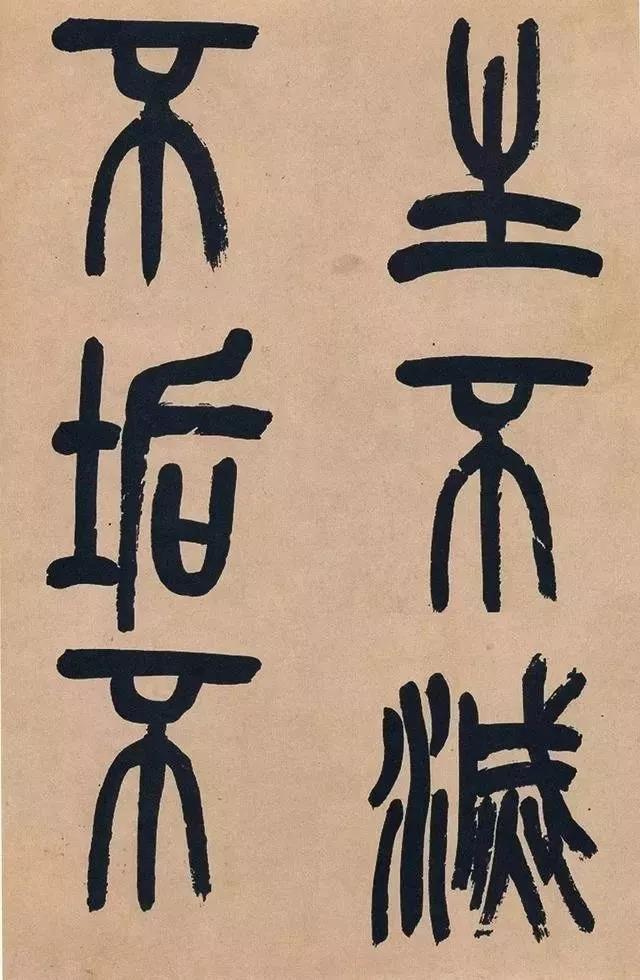 生不滅
不垢不